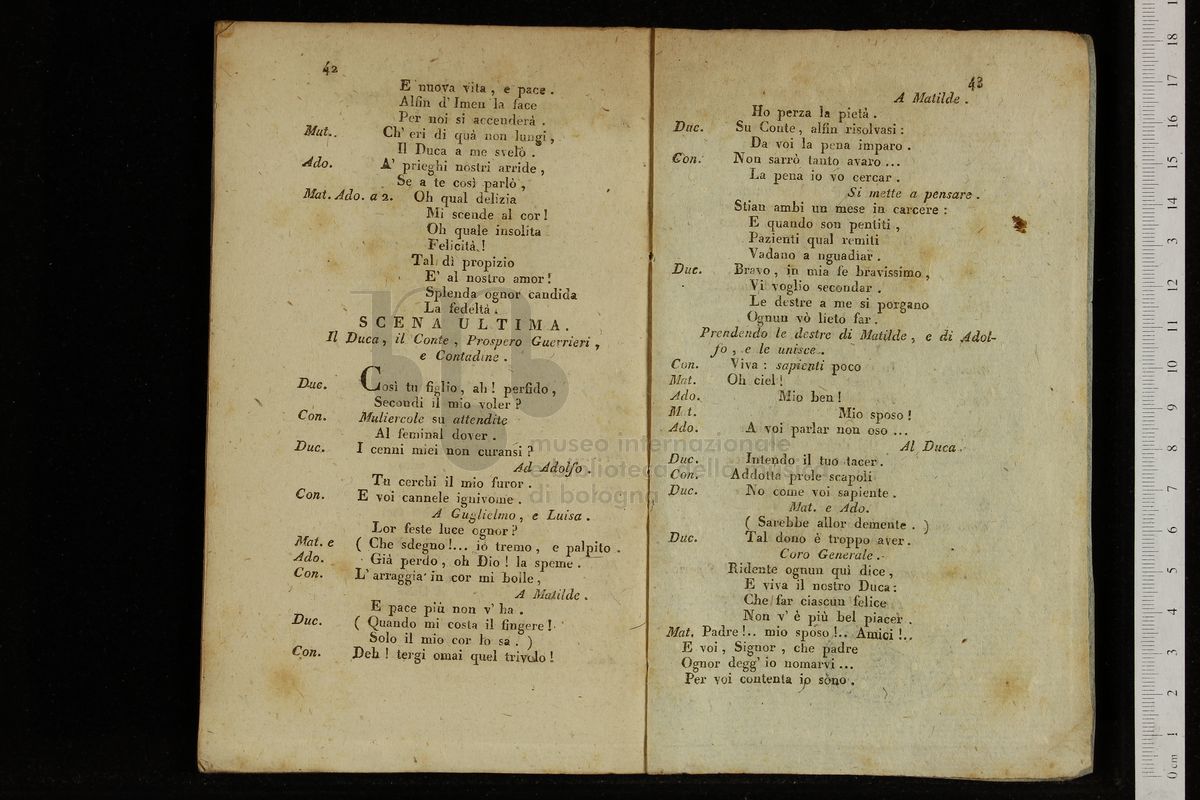 42
E nuova vita , e pace .
Alfin d' Imen la face
Per noi si accenderà .
Mat. Ch' eri di quà non lungi ,
Il Duca a me svelò .
Ado. A' prieghi nostri arride ,
Se a te così parlò ,
Mat. Ado. a 2. Oh qual delizia
Mi scende al cor !
Oh quale insolita
Felicità !
Tal dì propizio
E' al nostro amor !
Splenda ognor candida
La fedeltà .
SCENA ULTIMA.
Il Duca , il Conte , Prospero Guerrieri ,
e Contadine .
Duc. Così tu figlio , ah ! perfido ,
Secondi il mio voler ?
Con. Muliercole su attendite
Al feminal dover .
Duc. I cenni miei non curansi ?
Ad Adolfo .
Tu cerchi il mio furor .
Con. E voi cannele ignivome .
A Guglielmo , e Luisa .
Lor feste luce ognor ?
Mat. e ( Che sdegno !... io tremo , e palpito .
Ado. Già perdo , oh Dio ! la speme .
Con. L' arraggia' in cor mi bolle ,
A Matilde .
E pace più non v' ha .
Duc. ( Quando mi costa il fingere !
Solo il mio cor lo sa . )
Con. Deh ! tergi omai quel trivolo !
43
A Matilde .
Ho perza la pietà .
Duc. Su Conte , alfin risolvasi :
Da voi la pena imparo .
Con. Non sarrò tanto avaro ...
La pena io vo cercar .
Si mette a pensare .
Stian ambi un mese in carcere :
E quando son pentiti ,
Pazienti qual remiti
Vadano a nguadiar .
Duc. Bravo , in mia fe bravissimo ,
Vi voglio secondar .
Le destre a me si porgano
Ognun vò lieto far .
Prendendo le destre di Matilde , e di Adol-
fo , e le unisce .
Con. Viva : sapienti poco
Mat. Oh ciel !
Ado. Mio ben !
Mat. Mio sposo !
Ado. A voi parlar non oso ...
Al Duca .
Duc. Intendo il tuo tacer .
Con. Addotta prole scapoli
Duc. No come voi sapiente .
Mat. e Ado.
( Sarebbe allor demente . )
Duc. Tal dono è troppo aver .
Coro Generale .
Ridente ognun quì dice ,
E viva il nostro Duca :
Che far ciascun felice
Non v' è più bel piacer .
Mat. Padre !.. mio sposo !.. Amici !..
E voi , Signor , che padre
Ognor degg' io nomarvi ...
Per voi contenta io sono .
museo internazionale
e biblioteca della musica
di bologna
0 cm 1 2 3 4 5 6 7 8 9 10 11 12 13 14 15 16 17 18